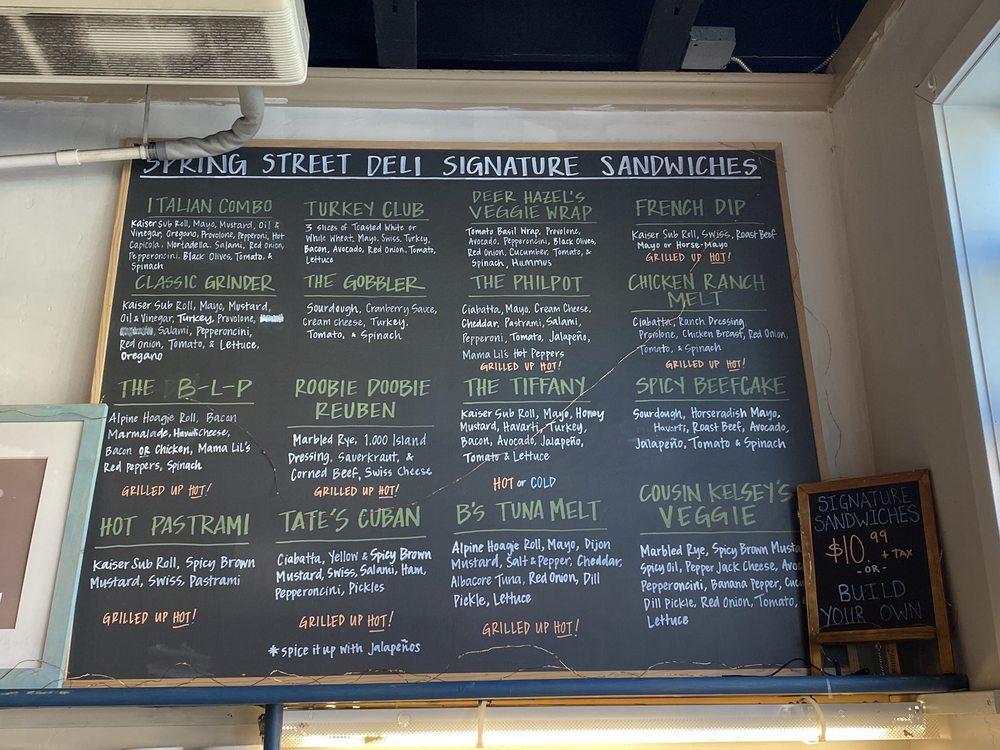 SPRING STREET DELI SIGNATURE SANDWICHES
ITALIAN COMBO
Kaiser Sub Roll, Mayo, Mustard, Oil &
Vinegar, Oregano, Provolone, Pepperoni, Hot
Capicola, Mortadella, Salami, Red Onion,
Pepperoncini, Black Olives, Tomato, &
Spinach
TURKEY CLUB
3 slices of Toasted White or
Whole Wheat, Mayo, Swiss, Turkey,
Bacon, Avocado, Red Onion, Tomato,
Lettuce
DEER HAZEL'S
VEGGIE WRAP
Tomato Basil Wrap, Provolone,
Avocado, Pepperoncini, Black Olives,
Red Onion, Cucumber, Tomato, &
Spinach, Hummus
FRENCH DIP
Kaiser Sub Roll, Swiss, Roast Beef
Mayo or Horse-Mayo
GRILLED UP HOT!
CLASSIC GRINDER
Kaiser Sub Roll, Mayo, Mustard,
Oil & Vinegar, Turkey, Provolone,
Salami, Pepperoncini,
Red Onion, Tomato, & Lettuce,
Oregano
THE GOBBLER
Sourdough, Cranberry Sauce,
Cream Cheese, Turkey,
Tomato, & Spinach
THE PHILPOT
Ciabatta, Mayo, Cream Cheese,
Cheddar, Pastrami, Salami,
Pepperoni, Tomato, Jalapeño,
Mama Lil's Hot Peppers
GRILLED UP HOT!
CHICKEN RANCH
MELT
Ciabatta, Ranch Dressing,
Provolone, Chicken Breast, Red Onion,
Tomato, & Spinach
GRILLED UP HOT!
THE B-L-P
Alpine Hoagie Roll, Bacon
Marmalade, Havarti Cheese,
Bacon OR Chicken, Mama Lil's
Red Peppers, Spinach
GRILLED UP HOT!
ROOBIE DOOBIE
REUBEN
Marbled Rye, 1,000 Island
Dressing, Sauerkraut, &
Corned Beef, Swiss Cheese
GRILLED UP HOT!
THE TIFFANY
Kaiser Sub Roll, Mayo, Honey
Mustard, Havarti, Turkey,
Bacon, Avocado, Jalapeño,
Tomato & Lettuce
HOT or COLD
SPICY BEEFCAKE
Sourdough, Horseradish Mayo,
Havarti, Roast Beef, Avocado,
Jalapeño, Tomato & Spinach
HOT PASTRAMI
Kaiser Sub Roll, Spicy Brown
Mustard, Swiss, Pastrami
GRILLED UP HOT!
TATE'S CUBAN
Ciabatta, Yellow & Spicy Brown
Mustard, Swiss, Salami, Ham,
Pepperoncini, Pickles
GRILLED UP HOT!
*spice it up with Jalapeños
B'S TUNA MELT
Alpine Hoagie Roll, Mayo, Dijon
Mustard, Salt & Pepper, Cheddar,
Albacore Tuna, Red Onion, Dill
Pickle, Lettuce
GRILLED UP HOT!
COUSIN KELSEY'S
VEGGIE
Marbled Rye, Spicy Brown Musta
Spicy Oil, Pepper Jack Cheese, Avo
Pepperoncini, Banana Pepper, Cucu
Dill Pickle, Red Onion, Tomato,
Lettuce
SIGNATURE
SANDWICHES
$10.99 + TAX
-OR-
BUILD
YOUR OWN